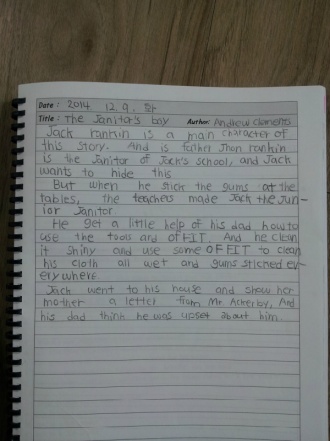 Date : 2014. 12. 9. 화
Title : The Janitor's boy Author: Andrew Clements
Jack rankin is a main character of
this story. And is father Jhon rankin
is the Janitor of Jack's school, and Jack
wants to hide this
But when he stick the gums at the
tables, the teachers made Jack the Jun-
ior Janitor
He get a little help of his dad how to
use the tools and OFFIT. And he clean
it shiny and use some OFFIT to clean
his cloth all wet and gums sticked ev-
erywhere.
Jack went to his house and show her
mother a letter from Mr. Ackerby, And
his dad think he was upset about him